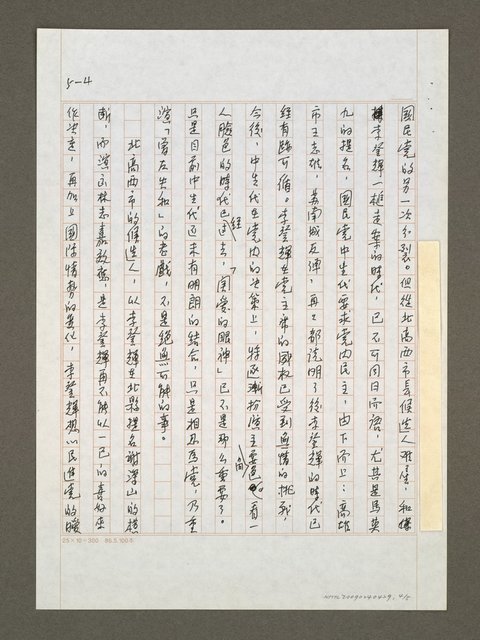 5-4
國民黨的另一次分裂。但從北高兩市長候選人難產，和
李登輝一樁定案的時代，已不可同日而語，尤其是馬英
九的提名，國民黨中生代要求黨內民主，由下而上；高雄
市王志雄，吳南城反彈，再再都說明了後李登輝的時代已
經有跡可循。李登輝在黨主席的威权已受到無情的挑戰，
今後，中生代在黨內的决策上，將逐漸扮演主要角色，看一
人臉色的時代已經过去，「關愛的眼神」已不是那么重要了。
只是目前中生代還未有明朗的結合，只是相忍為党，乃至
演「窩反失和」的老戲，不是絕無可能的事。
北高兩市的候選人，以李登輝在北縣提名謝深山的模
斷，而演出林志嘉敎訓，是李登輝再不能以一己的喜好來
作决定，再加上國際情勢的變化，李登輝想以民進党的暧
25×10=300 86.5.100本
NMTL20090240429, 4/5